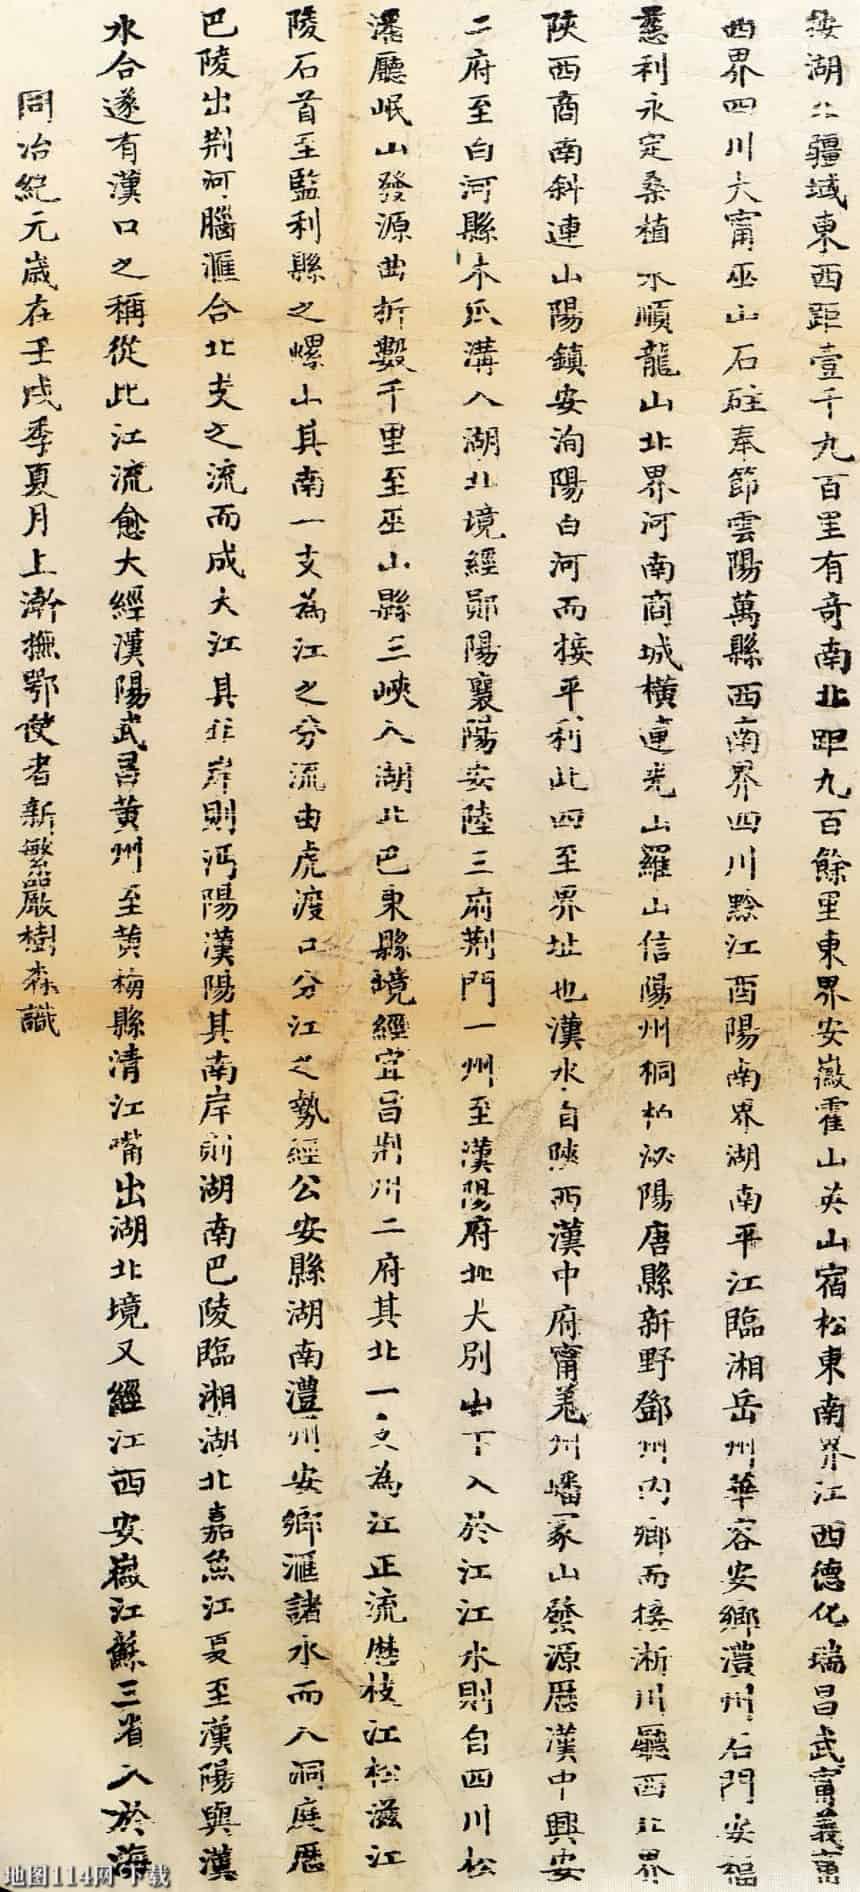 按湖北疆域東西距壹千九百里有奇南北距九百餘里東界安徽霍山英山宿松東南界江西德化瑞昌武甯義甯
西界四川大甯巫山石砫奉節雲陽萬縣西南界四川黔江酉陽南界湖南平江臨湘岳州華容安鄉澧州石門安福
慈利永定桑植永順龍山北界河南商城橫連光山羅山信陽州桐柏泌陽唐縣新野鄧州內鄉而接淅川廳西北界
陝西商南斜連山陽鎮安洵陽白河而接平利此四至界址也漢水自陝西漢中府甯羌州嶓冢山發源歷漢中興安
二府至白河縣木瓜溝入湖北境經鄖陽襄陽安陸三府荆門一州至漢陽府北大別山下入於江江水則自四川松
潘廳岷山發源曲折數千里至巫山縣三峽入湖北巴東縣境經宜昌荆州二府其北一支為江正流歷枝江松滋江
陵石首至監利縣之螺山其南一支為江之分流由虎渡口分江之勢經公安縣湖南澧州安鄉滙諸水而入洞庭歷
巴陵出荆河腦滙合北支之流而成大江其北岸則沔陽漢陽其南岸則湖南巴陵臨湘湖北嘉魚江夏至漢陽與漢
水合遂有漢口之稱從此江流愈大經漢陽武昌黃州至黃梅縣清江嘴出湖北境又經江西安徽江蘇三省入於海
同治紀元歲在壬戌季夏月上澣撫鄂使者新繁嚴樹森識
地图114网 下载